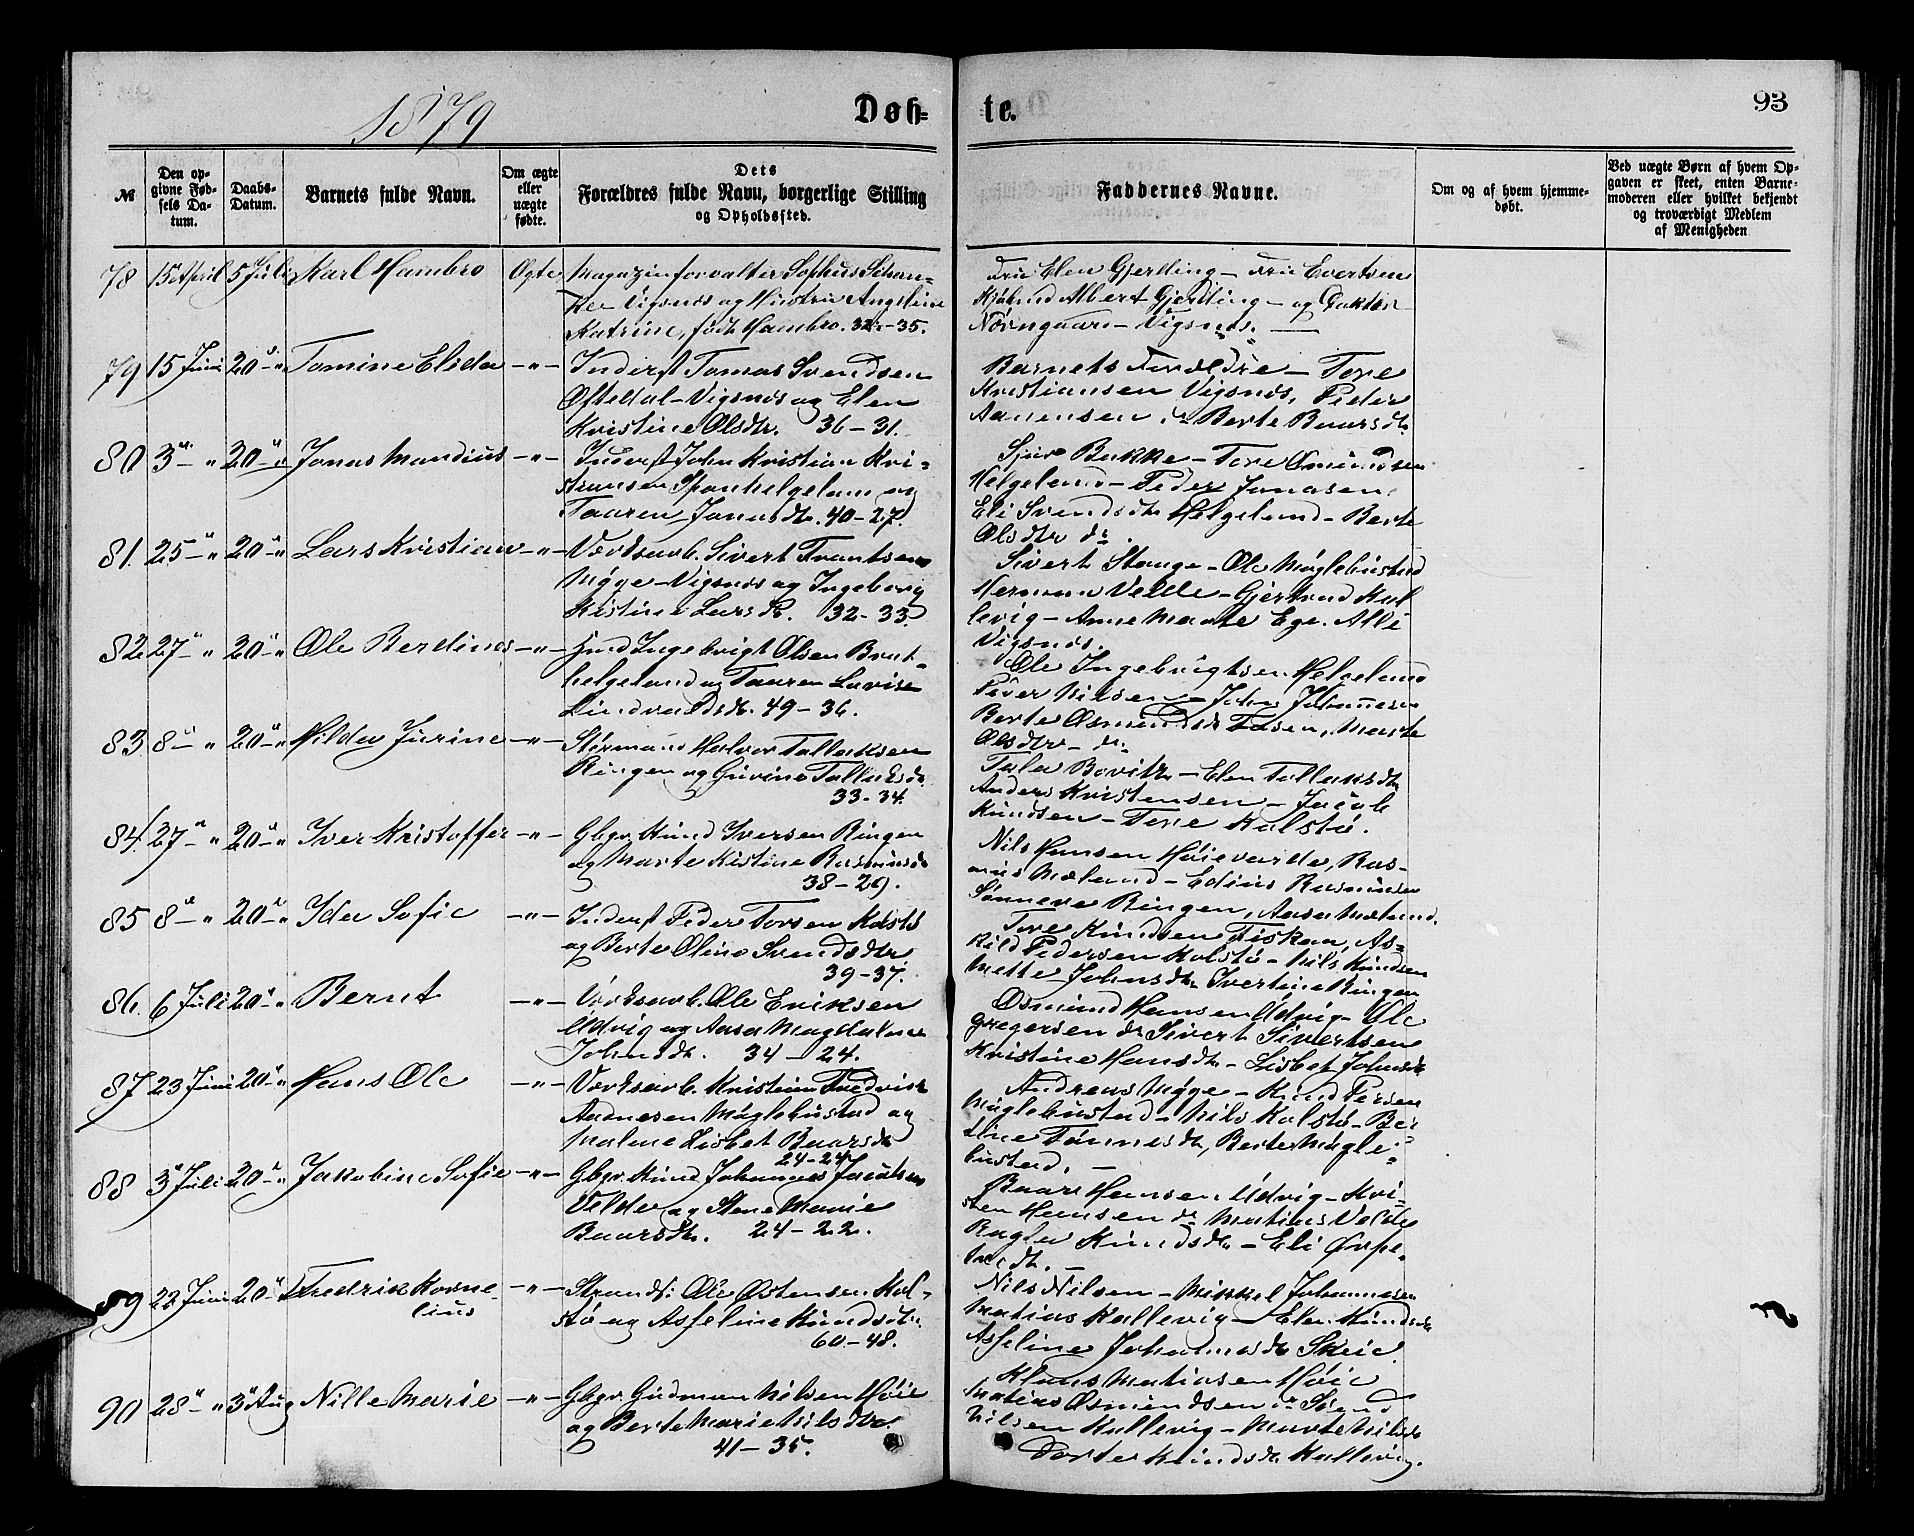 1879
Døb= te.
93
№
Den op-
givne Fød-
sels Da-
tum.
Daabs-
Datum.
Barnets fulde Navn.
Om ægte
eller
uægte
fødte.
Dets
Forældres fulde Navn, borgerlige Stilling
og Opholdssted.
Faddernes Navne.
Om og af hvem hjemme-
døbt.
Ved uægte Børn af hvem Op-
gaven er skeet, enten Barne-
moderen eller hvilket bekjendt
og troværdigt Medlem
af Menigheden
78 15 April 5 Juli Karl Hambro Ægte Magazinforvalter Sophus Schan-
ke Vigsnæs og Hustru Angeline
Katrine, født Hambro. 32-35.
Fru Elen Gjerding - Fru Evertsen
Albert Gjerding - og Doktor
Nörregaard - Vigsnæs. —
79 15 Juni 20 - " Tomine Elida -"- Inderst Tomas Svendsen
Oftedal - Vigsnæs og Elen
Kristine Olsdtr. 36-31.
Barnets Forældre - Tore
Kristiansen Vigsnæs, Peder
Aanensen, Berte Baarsdtr
80 3 - " 20 - " Jonas Mandius -"- Inderst John Kristian Kri-
stiansen Spanhelgeland og
Taaren Jonasdtr. 40-27.
Sjur Bakke - Tore Osmundsen
Helgeland - Peder Jonasen
Eli Svendsdtr Helgeland - Berte
Olsdtr do.
81. 25 - " 20 - " Lars Kristian -"- Værksarb. Sivert Frantsen
Myge - Vigsnæs og Ingeborg
Kistine Larsdtr. 32-33.
Sivert Stange - Ole Möglebustad
Herman Velde - Gjertrud Kal-
levig - Anne Marte Ege. Alle
Vigsnæs.
82 27 - " 20 - " Ole Berdines -"- Hmd Ingebrigt Olsen Brat-
helgeland og Taaren Lovise
49-36.
Ole Ingebrigtsen Helgeland
Iver Nilsen - John Johannesen
Berte Osmundsdtr Fosen, Marte
Olsdtr - do.
83. 8 - " 20 - " Hilda Jurine -"- Störmand Halvor Tollaksen
Ringen og Gurine Tollaksdtr
33-34.
Elen Tollaksdtr
Anders Kristensen - Jacob
Knudsen - Tore Kolstö.
84. 27 - " 20 - " Iver Kristoffer -"- Gbgr. Knud Iversen Ringen
og Marte Kistine Rasmusdtr
38-29.
Nils Hansen Höievarde, Ras-
mus Mæland - Edius Rasmusen
Sönneve Ringen, Aasa Mæland.
85 8 - " 20 - " Ida Sofie -"- Inderst Peder Torsen Kolstö
og Berte Oline Svendsdtr
39-37.
Tore Knudsen Fiskaa, As-
kild Pedersen Kolstö - Nils Knudsen
Mette Johnsdtr Svertine Ringen
86. 6 Juli 20 - " Bernt -"- Værksarb. Ole Eriksen
Udvig og Aasa Magdalena
Johnsdtr. 34-24.
Osmund Hansen Udvig - Ole
Gregersen do Sivert Sivertsen
Kristine Hansdtr - Lisbet Johnsdtr
87 23 Juni 20 - " Hans Ole -"- Værksarb. Kristian Fredrik
Andresen Möglebustad og
Malene Lisbet Baarsdtr
24-24
Andreas Myge - Knud Persen
Möglebustad - Nils Kolstö - Ber-
tine Tönnesdtr, Berte Mögle-
bustad. —
88 3 Juli 20 - " Jakobine Sofie -"- Gbgr. Knud Johannes Jacobsen
Velde og Stene Marie
Baarsdtr. 24-22.
Baar Hansen Udvig - Kri-
sten Hansen do Matias Velde
Ragla Knudsdtr - Eli
89 22 Juni 20 - Fredrik Korne-
lius -"- Strands. Ole Östensen Kol-
stö og Asseline Knudsdtr.
60-48.
Nils Nilsen - Mikkel Johannesen
Matias Kallevig - Elen Knudsdtr
Asseline Johannesdtr Skeie.
90 28 - " 3 Aug Nille Marie -"- Gbgr. Gudman Nilsen Höie
og Berte Marie Nilsdtr.
41-35.
Klaus Matiasen Höie
Matias Osmundsen do Svend
Nilsen Kallevig - Marte Nilsdtr
Dorte Knudsdtr Kallevig.